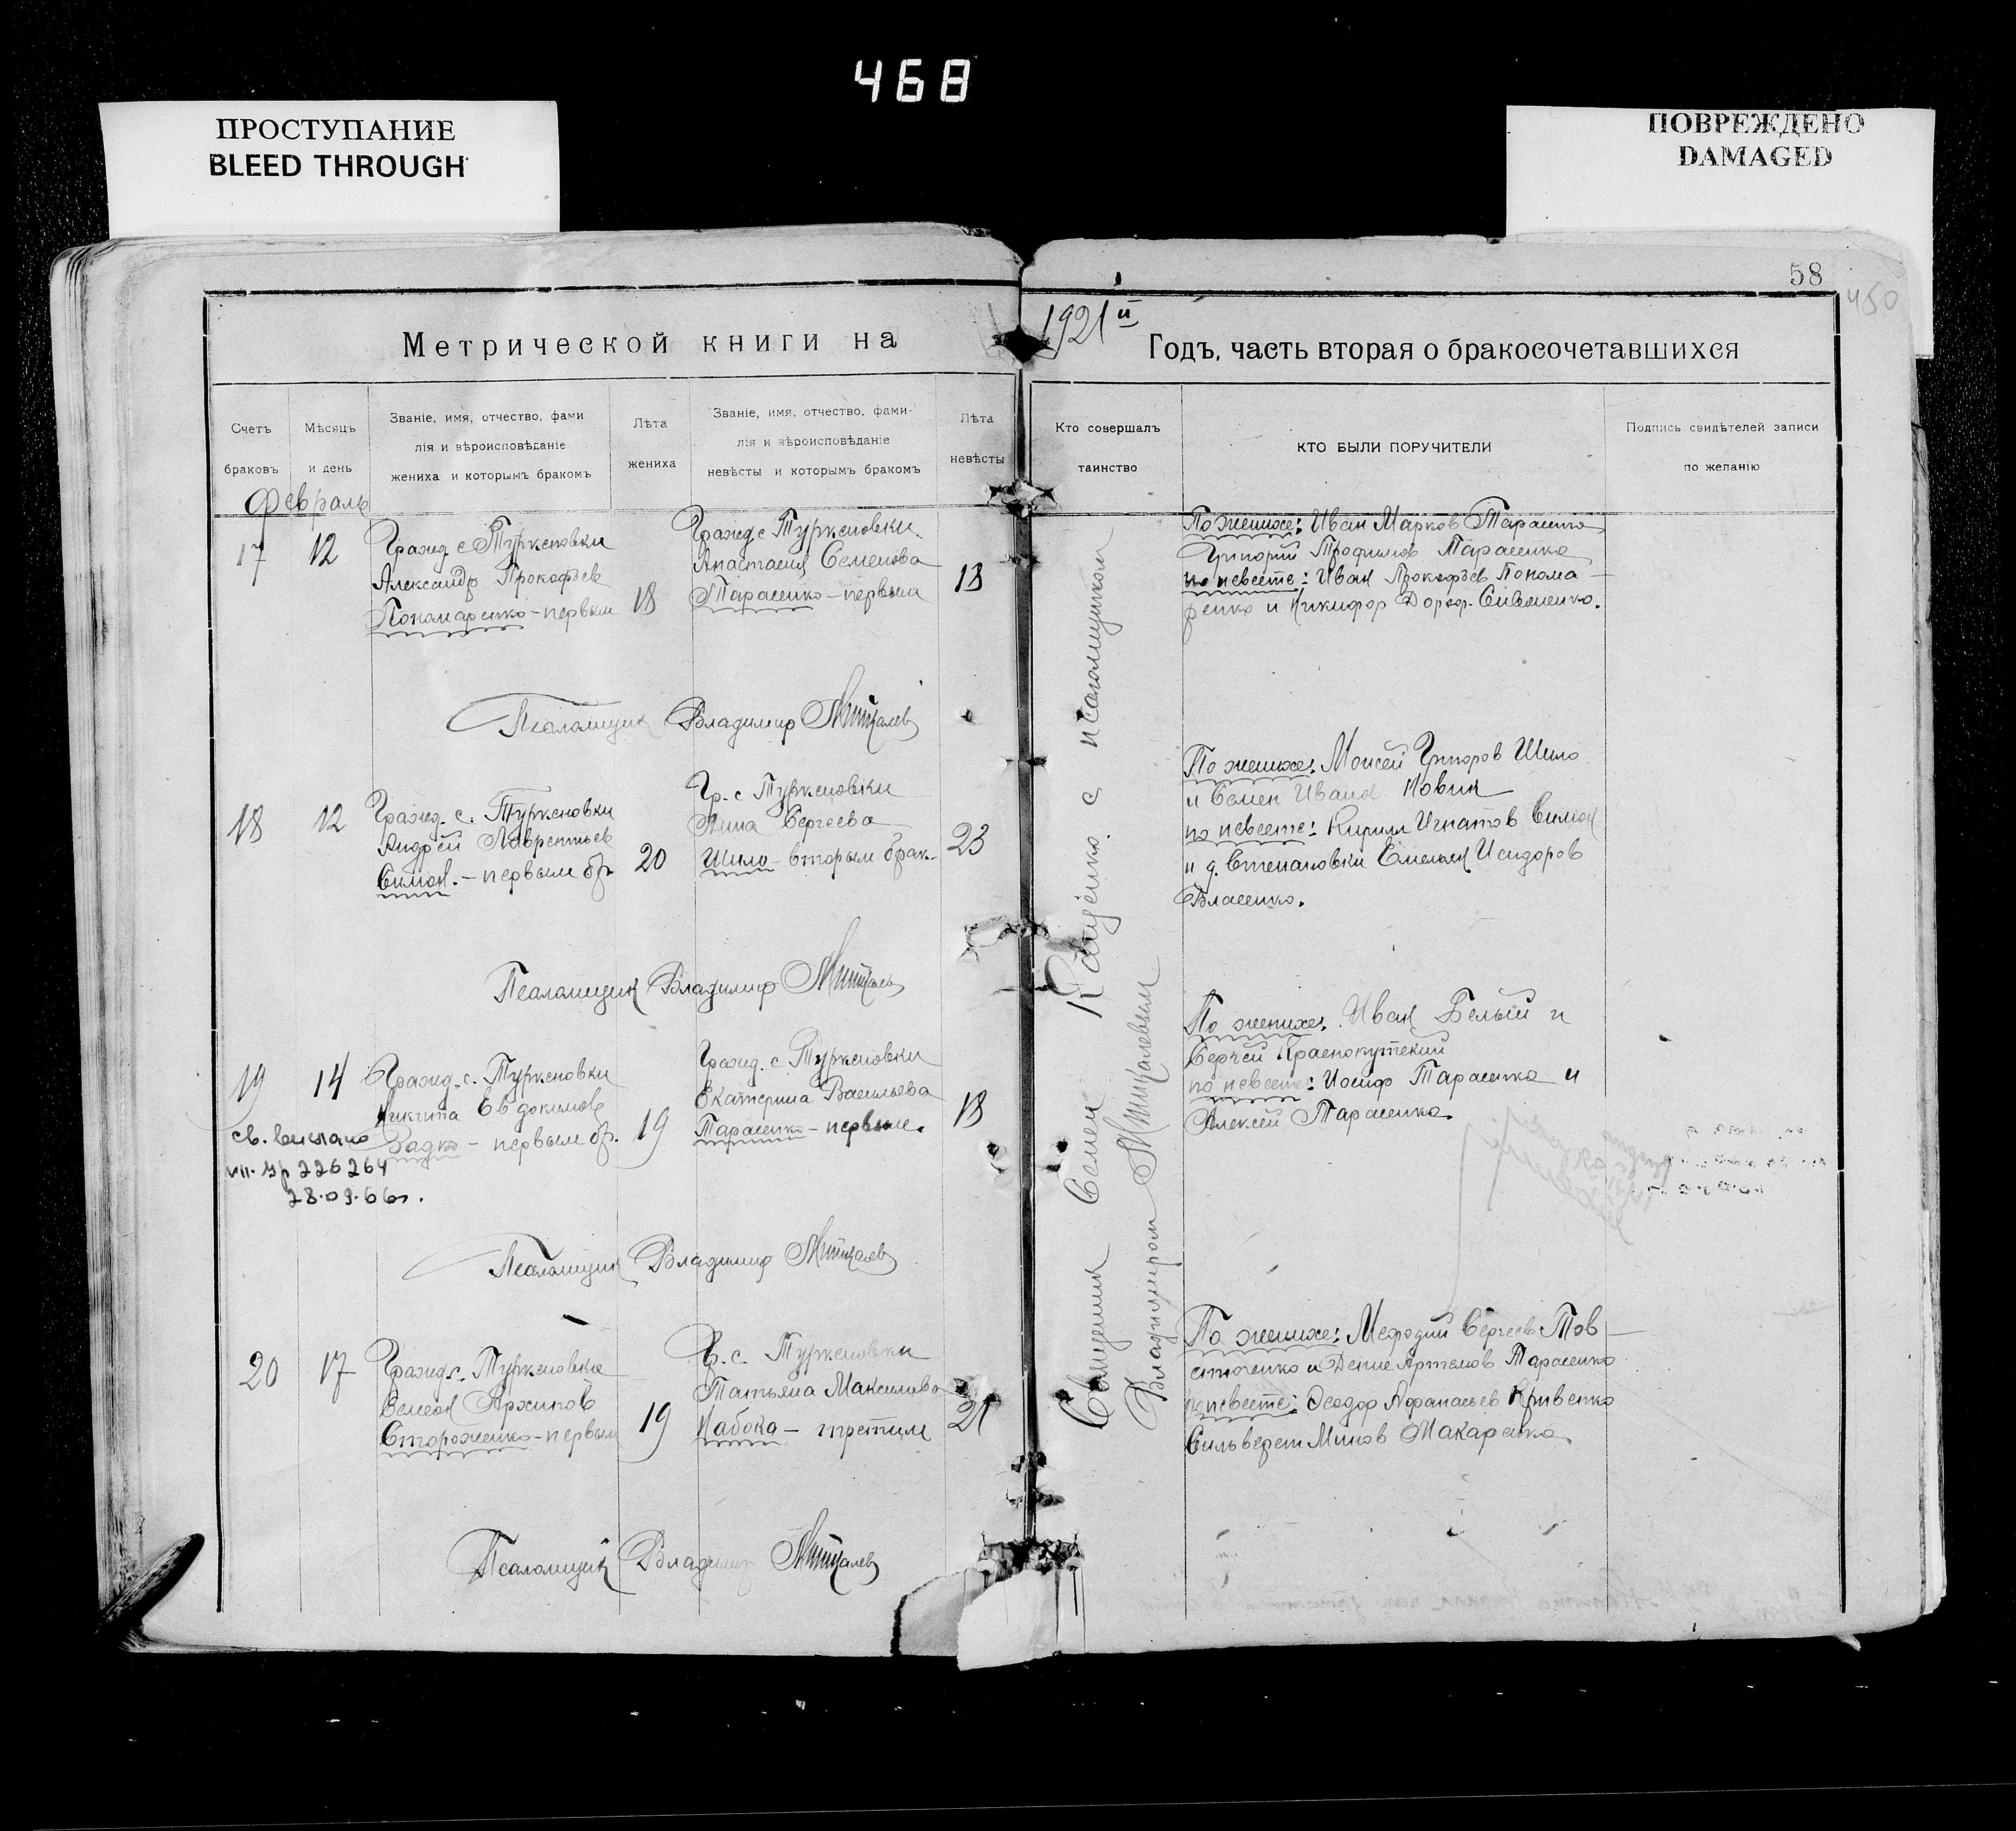 468
ПРОСТУПАНИЕ
BLEED THROUGH
ПОВРЕЖДЕНО
DAMAGED
58
450
Метрической книги на
1921 й
Годъ, часть вторая о бракосочетавшихся
Счетъ браковъ
Мѣсяцъ и день
Званіе, имя, отчество, фами
лія и вѣроисповѣданіе
жениха и которымъ бракомъ
Лѣта жениха
Званіе, имя, отчество, фами-
лія и вѣроисповѣданіе
невѣсты и которымъ бракомъ
Лѣта невѣсты
Кто совершалъ таинство
КТО БЫЛИ ПОРУЧИТЕЛИ
Подпись свидѣтелей записи
по желанію
Февраль
17
12
Гражд. с. Туркеновки
Александр Прокофьев
Пономаренко - первым
18
Гражд. с. Туркеновки
Анастасия Семенова
Тарасенко - первым
18
По женихе: Иван Марков Тарасенко
Григорий Трофимов Тарасенко
по невесте: Иван Прокофьев Понома-
ренко и Никифор Дороф.
Псаломщик Владимир
18
12
Гражд. с. Туркеновки
Андрей Лаврентьев
Симон. - первым бр.
20
Гр. с. Туркеновки
Анна Сергеева
Шило - вторым брак.
23
По женихе: Моисей Григоров Шило
и Семен Иванов Новик
по невесте: Кирилл Игнатов Симон
и д. Степановки Емельян Исидоров
Власенко.
Псаломщик Владимир
19
14
Гражд. с. Туркеновки
Никита Евдокимов
Задко - первым бр.
19
Гражд. с. Туркеновки
Екатерина Васильева
Тарасенко - первым.
18
По женихе: Иван Белый и
Сергей Краснокутский
по невесте: Иосиф Тарасенко и
Алексей Тарасенко.
св. выслано
226264
28.09.66г.
Псаломщик Владимир
20
17
Гражд. с. Туркеновки
Семен Архипов
Стороженко - первым
19
Гр. с. Туркеновки
Татьяна Максимова
Набока - третим
21
По женихе: Мефодий Сергеев Тов-
сточенко и Денис Артемов Тарасенко
по невесте: Феодор Афанасьев Кривенко
Сильверст Минов Макаренко.
Псаломщик Владимир
Священник Семен Кащенко с псаломщиком
Владимиром